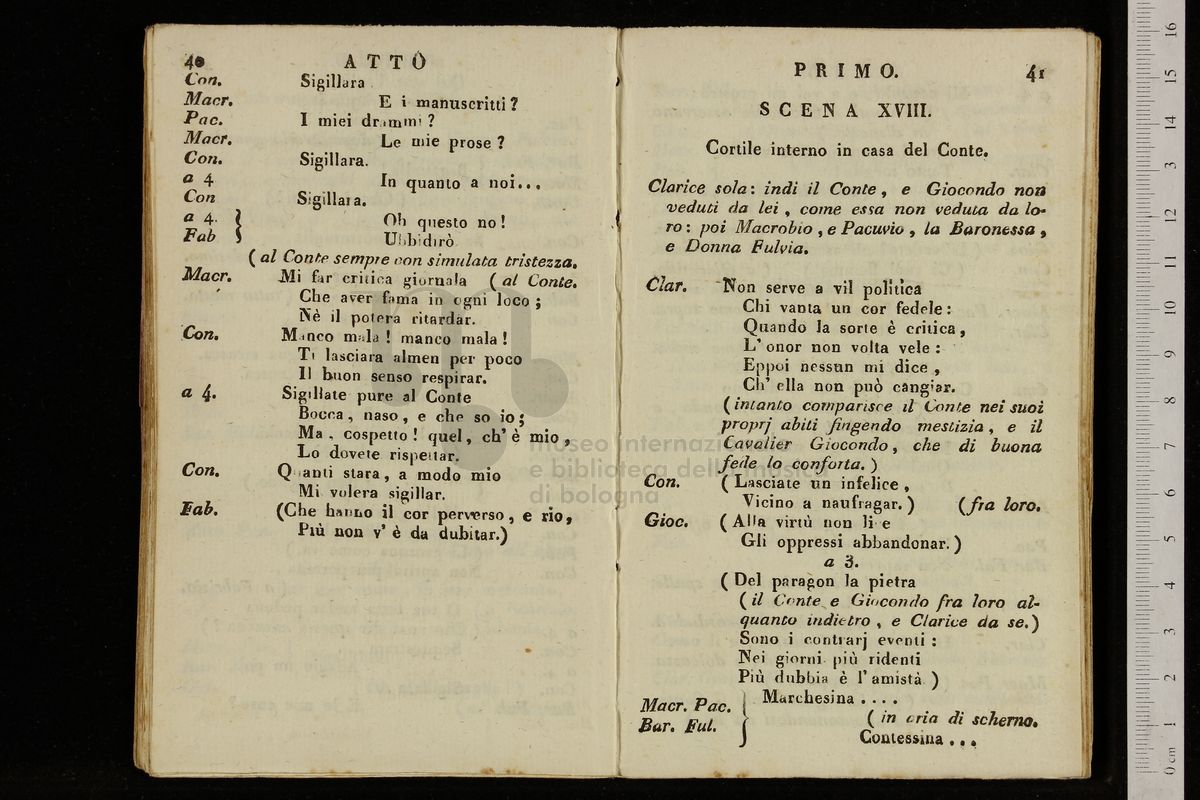 40
ATTO
Con. Sigillara
Macr. E i manuscritti?
Pac. I miei drammi?
Macr. Le mie prose?
Con. Sigillara.
a 4 In quanto a noi...
Con Sigillara.
a 4. Oh questo no!
Fab Ubbidirò
(al Conte sempre con simulata tristezza.
Macr. Mi far critica giornala (al Conte.
Che aver fama in ogni loco;
Nè il potera ritardar.
Con. Manco mala! manco mala!
Ti lasciara almen per poco
Il buon senso respirar.
a 4. Sigillate pure al Conte
Bocca, naso, e che so io;
Ma, cospetto! quel, ch'è mio,
Lo dovete rispettar.
Con. Quanti stara, a modo mio
Mi volera sigillar.
Fab. (Che hanno il cor perverso, e rio,
Più non v'è da dubitar.)
PRIMO.
41
SCENA XVIII.
Cortile interno in casa del Conte.
Clarice sola: indi il Conte, e Giocondo non
veduti da lei, come essa non veduta da lo-
ro: poi Macrobio, e Pacuvio, la Baronessa,
e Donna Fulvia.
Clar. Non serve a vil politica
Chi vanta un cor fedele:
Quando la sorte è critica,
L'onor non volta vele:
Eppoi nessun mi dice,
Ch'ella non può cangiar.
(intanto comparisce il Conte nei suoi
proprj abiti fingendo mestizia, e il
Cavalier Giocondo, che di buona
fede lo conforta.)
Con. (Lasciate un infelice,
Vicino a naufragar.) (fra loro.
Gioc. (Alla virtù non lice
Gli oppressi abbandonar.)
a 3.
(Del paragon la pietra
(il Conte e Giocondo fra loro al-
quanto indietro, e Clarice da se.)
Sono i contrarj eventi:
Nei giorni più ridenti
Più dubbia è l'amistà)
Macr. Pac. Marchesina ....
(in aria di scherno.
Bar. Ful. Contessina ...
museo internazionale
e biblioteca della musica
di bologna
0 cm 1 2 3 4 5 6 7 8 9 10 11 12 13 14 15 16